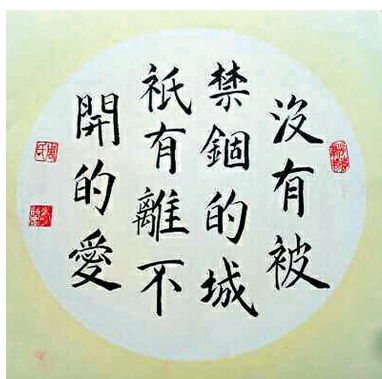 沒有被
禁錮的城
祇有離不
開的愛